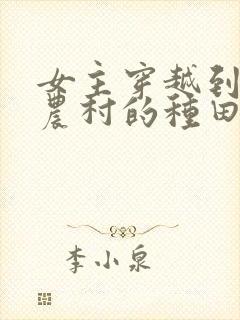 女主穿越到
農村的種田
李小泉